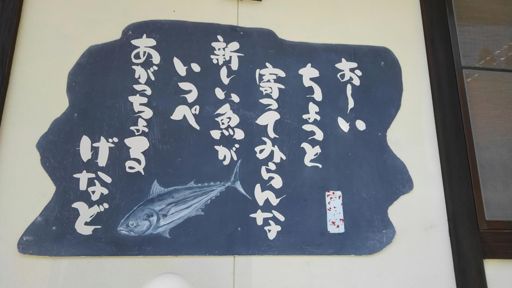 お〜い
ちょっと
寄ってみらんな
新しい魚が
いっぺ
あがっちょる
げなど